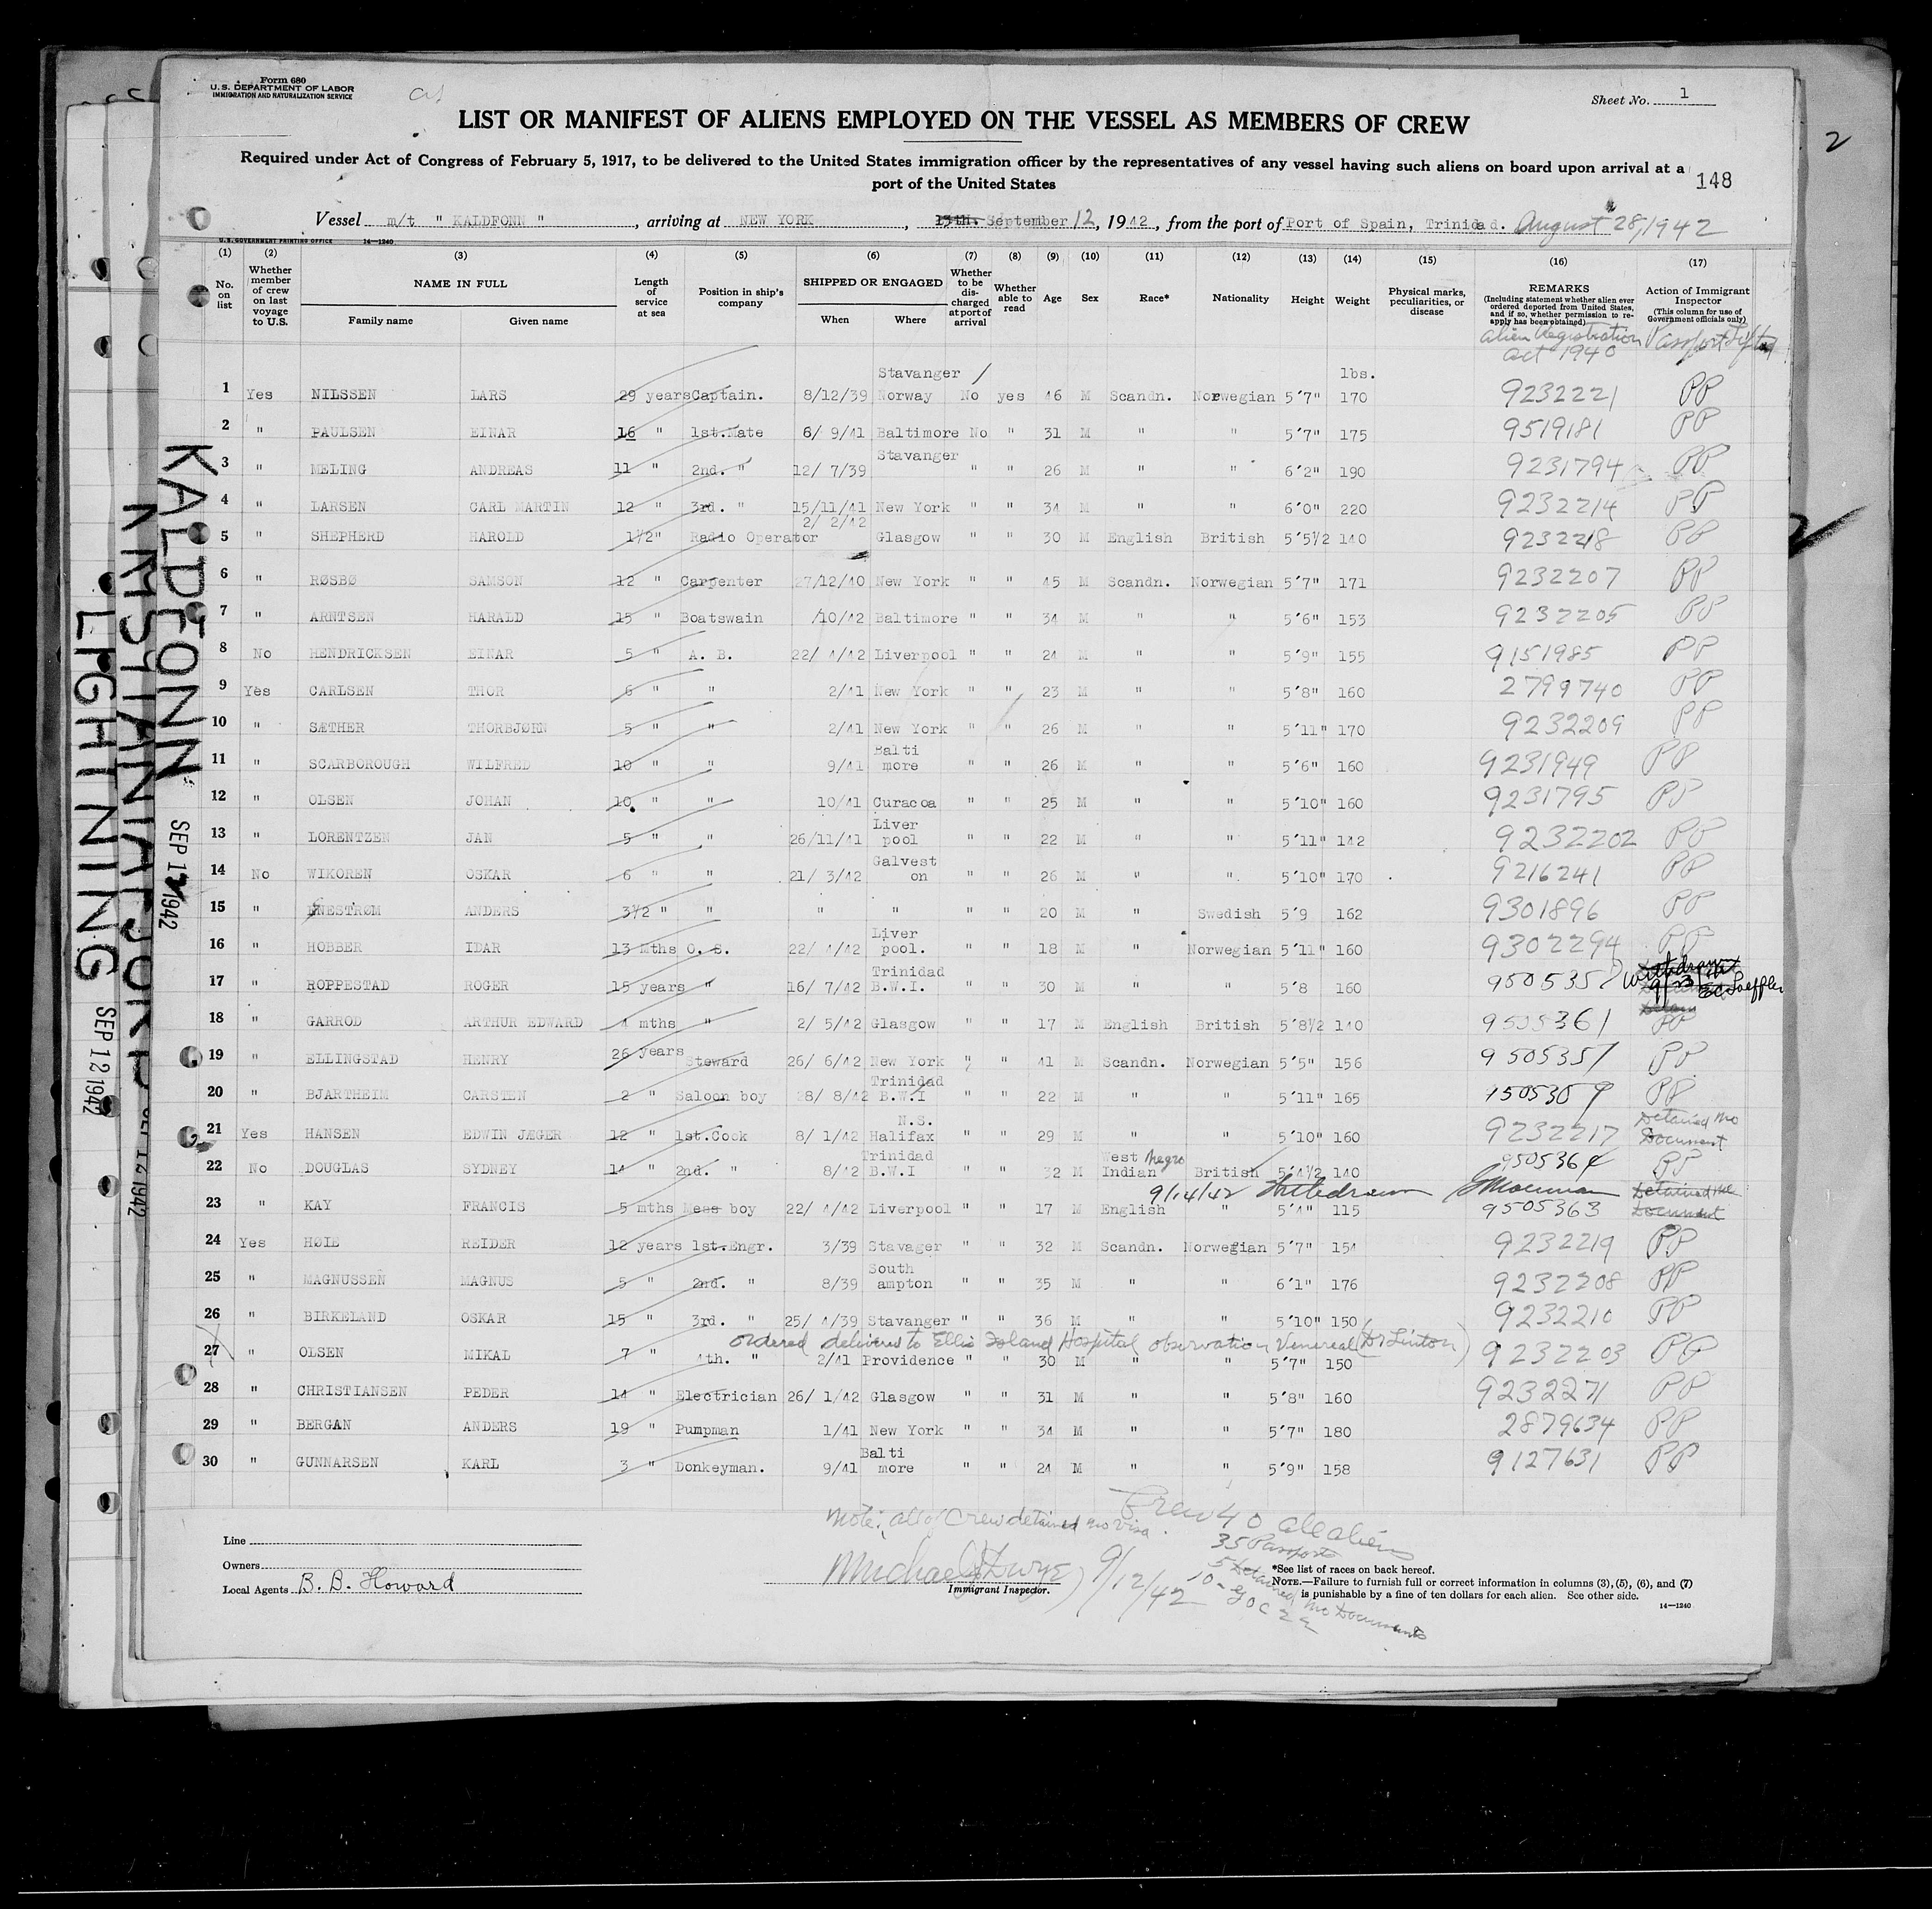 Form 680
U. S. DEPARTMENT OF LABOR
IMMIGRATION AND NATURALIZATION SERVICE
Sheet No. 1
LIST OR MANIFEST OF ALIENS EMPLOYED ON THE VESSEL AS MEMBERS OF CREW
Required under Act of Congress of February 5, 1917, to be delivered to the United States immigration officer by the representatives of any vessel having such aliens on board upon arrival at a
port of the United States
148
2
Vessel m/t " KALDFONN ", arriving at NEW YORK, 13th. September 12, 1942, from the port of Port of Spain, Trinidad. August 28, 1942
U. S. GOVERNMENT PRINTING OFFICE 14—1240
(1) (2) (3) (4) (5) (6) (7) (8) (9) (10) (11) (12) (13) (14) (15) (16) (17)
No. on list
Whether member of crew on last voyage to U.S.
NAME IN FULL
Family name Given name
Length of service at sea
Position in ship's company
SHIPPED OR ENGAGED
When Where
Whether to be discharged at port of arrival
Whether able to read
Age
Sex
Race*
Nationality
Height
Weight
Physical marks, peculiarities, or disease
REMARKS
(Including statement whether alien ever ordered deported from United States, and if so, whether permission to reapply has been obtained)
Action of Immigrant Inspector
(This column for use of Government officials only)
Alien Registration Act 1940
Passport Lifted
lbs.
1 Yes NILSSEN LARS 29 years Captain. 8/12/39 Stavanger Norway No yes 46 M Scandn. Norwegian 5'7" 170 9232221 PP
2 " PAULSEN EINAR 16 " 1st.Mate 6/ 9/41 Baltimore No " 31 M " " 5'7" 175 9519181 PP
3 " MELING ANDREAS 11 " 2nd. " 12/ 7/39 Stavanger " " 26 M " " 6'2" 190 9231794 PP
4 " LARSEN CARL MARTIN 12 " 3rd. " 15/11/41 New York " " 34 M " " 6'0" 220 9232214 PP
5 " SHEPHERD HAROLD 1½" Radio Operator 2/ 2/42 Glasgow " " 30 M English British 5'5½ 140 9232218 PP
6 " RØSBØ SAMSON 12 " Carpenter 27/12/40 New York " " 45 M Scandn. Norwegian 5'7" 171 9232207 PP
7 " ARNTSEN HARALD 15 " Boatswain /10/42 Baltimore " " 34 M " " 5'6" 153 9232205 PP
8 No HENDRICKSEN EINAR 5 " A. B. 22/ 4/42 Liverpool " " 24 M " " 5'9" 155 9151985 PP
9 Yes CARLSEN THOR 6 " " 2/41 New York " " 23 M " " 5'8" 160 2799740 PP
10 " SÆTHER THORBJØRN 5 " " 2/41 New York " " 26 M " " 5'11" 170 9232209 PP
11 " SCARBOROUGH WILFRED 10 " " 9/41 Balti more " " 26 M " " 5'6" 160 9231949 PP
12 " OLSEN JOHAN 10 " " 10/41 Curacoa " " 25 M " " 5'10" 160 9231795 PP
13 " LORENTZEN JAN 5 " " 26/11/41 Liver pool " " 22 M " " 5'11" 142 9232202 PP
14 No WIKOREN OSKAR 6 " " 21/ 3/42 Galvest on " " 26 M " " 5'10" 170 9216241 PP
15 " ENESTRØM ANDERS 3½ " " " " " " 20 M " Swedish 5'9 162 9301896 PP
16 " HOBBER IDAR 13 Mths O. S. 22/ 4/42 Liver pool. " " 18 M " Norwegian 5'11" 160 9302294 PP
17 " ROPPESTAD ROGER 15 years " 16/ 7/42 Trinidad B.W.I. " " 30 M " " 5'8 160 Withdrawn 9/13/42 Loeffler
18 " GARROD ARTHUR EDWARD 4 mths " 2/ 5/42 Glasgow " " 17 M English British 5'8½ 140 9505361 PP
19 " ELLINGSTAD HENRY 26 years Steward 26/ 6/42 New York " " 41 M Scandn. Norwegian 5'5" 156 9505357 PP
20 " BJARTHEIM CARSTEN 2 " Saloon boy 28/ 8/42 Trinidad B.W.I " " 22 M " " 5'11" 165 PP
21 Yes HANSEN EDWIN JÆGER 12 " 1st.Cook 8/ 1/42 N.S. Halifax " " 29 M " " 5'10" 160 9232217 Detained No Document
22 No DOUGLAS SYDNEY 14 " 2nd. " 8/42 Trinidad B.W.I " " 32 M West Indian Negro British 5'4½ 140 9505364 PP
9/14/42 Withdrawn
23 " KAY FRANCIS 5 mths Mess boy 22/ 4/42 Liverpool " " 17 M English " 5'4" 115 9505363 Detained No Document
24 Yes HØIE REIDER 12 years 1st.Engr. 3/39 Stavager " " 32 M Scandn. Norwegian 5'7" 154 9232219 PP
25 " MAGNUSSEN MAGNUS 5 " 2nd. " 8/39 South ampton " " 35 M " " 6'1" 176 9232208 PP
26 " BIRKELAND OSKAR 15 " 3rd. " 25/ 4/39 Stavanger " " 36 M " " 5'10" 150 9232210 PP
ordered delivered to Ellis Island Hospital observation Venereal (Dr Linton)
27 " OLSEN MIKAL 7 " 4th. " 2/41 Providence " " 30 M " " 5'7" 150 9232203 PP
28 " CHRISTIANSEN PEDER 14 " Electrician 26/ 1/42 Glasgow " " 31 M " " 5'8" 160 9232271 PP
29 " BERGAN ANDERS 19 " Pumpman 1/41 New York " " 34 M " " 5'7" 180 2879634 PP
30 " GUNNARSEN KARL 3 " Donkeyman. 9/41 Balti more " " 24 M " " 5'9" 158 9127631 PP
Note: all of Crew detained no visa.
Crew 40 all aliens
35 Passports
5 Detained No Documents
Line
Owners
Local Agents B. B. Howard
Michael J Dwyer 9/12/42
Immigrant Inspector.
*See list of races on back hereof.
NOTE.—Failure to furnish full or correct information in columns (3), (5), (6), and (7)
is punishable by a fine of ten dollars for each alien. See other side.
14—1240
KALDFONN
SEP 12 1942
KRISTIANIAFJORD
SEP 12 1942
LIGHTNING
SEP 12 1942